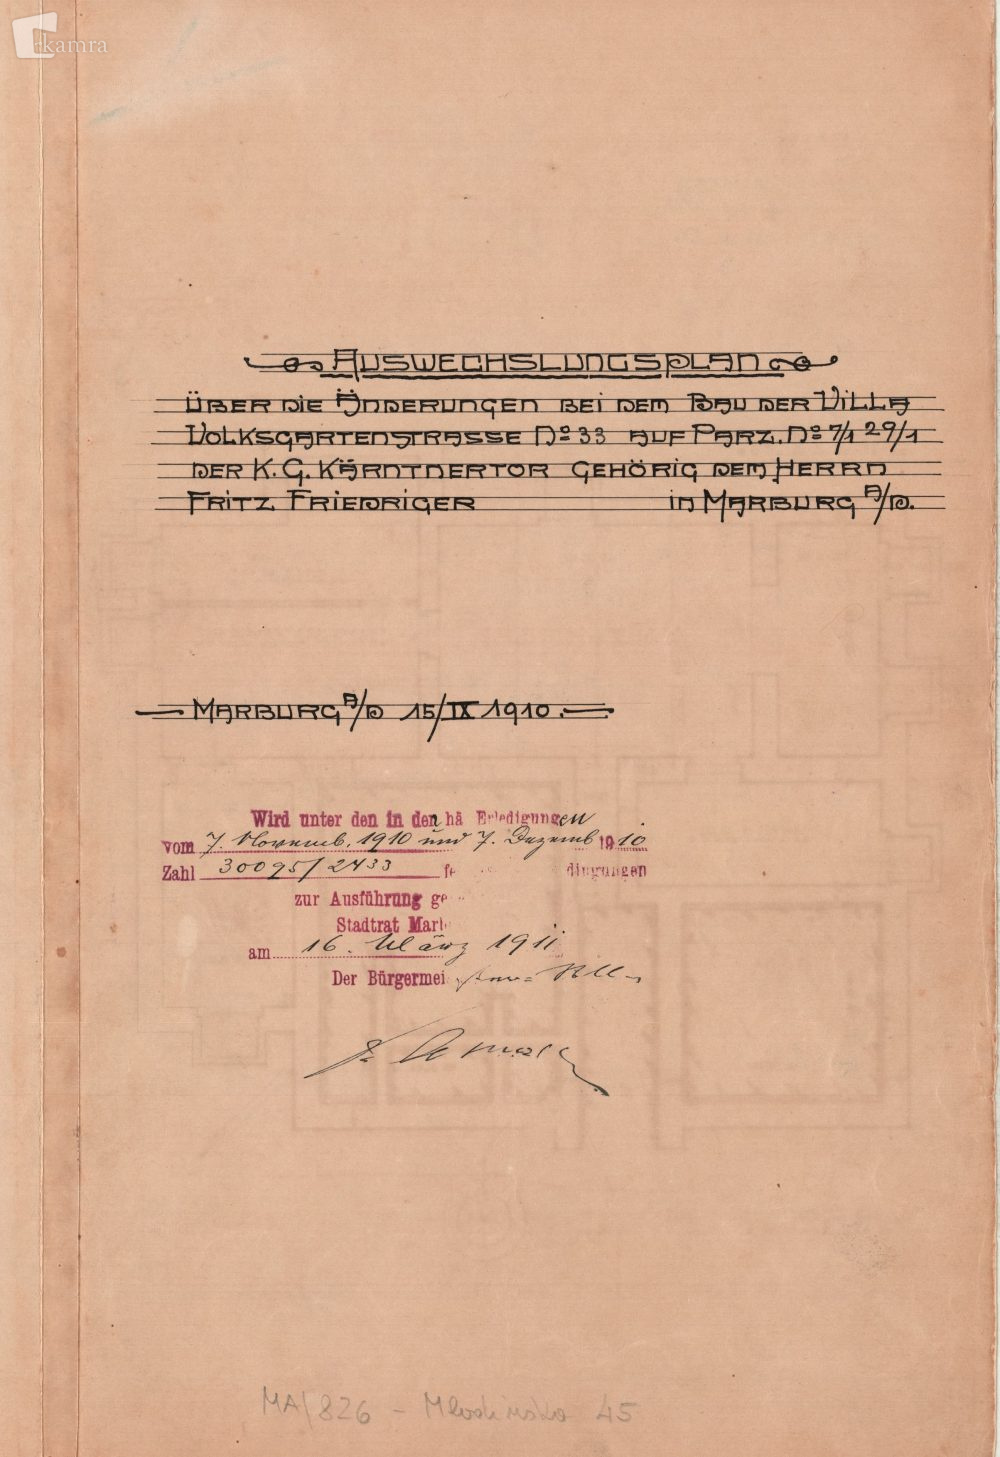 kamra
AUSWECHSLUNGSPLAN
ÜBER DIE ÄNDERUNGEN BEI DEM BAU DER VILLA
VOLKSGARTENSTRASSE No 33 AUF PARZ. No 7/1 29/1
DER K. G. KÄRNTNERTOR GEHÖRIG DEM HERRN
FRITZ FRIEDRIGER IN MARBURG A/D.
MARBURG A/D 15/IX 1910.
Wird unter den in den hä Erledigungen
vom 7. Novemb. 1910 und 7. Dezemb 1910
Zahl 30095/2433 dingungen
zur Ausführung ge
Stadtrat Marb
am 16. März 1911
Der Bürgermei
MA/826 - Mladinska 45